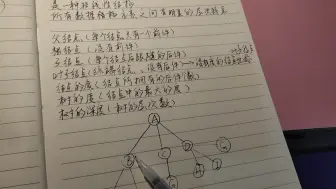 是一种非线性结构
所有数据元素之间有明显的层次特点
父结点（每个结点只有一个前件）
根结点（没有前件）
子结点（每个结点后跟随的后件）
叶子结点（终端结点、没有后件）
结点的度（结点所拥有的后件个数）
树的度（结点中的最大的度）
树的深度（树的层次数）
A
B
C
D
H